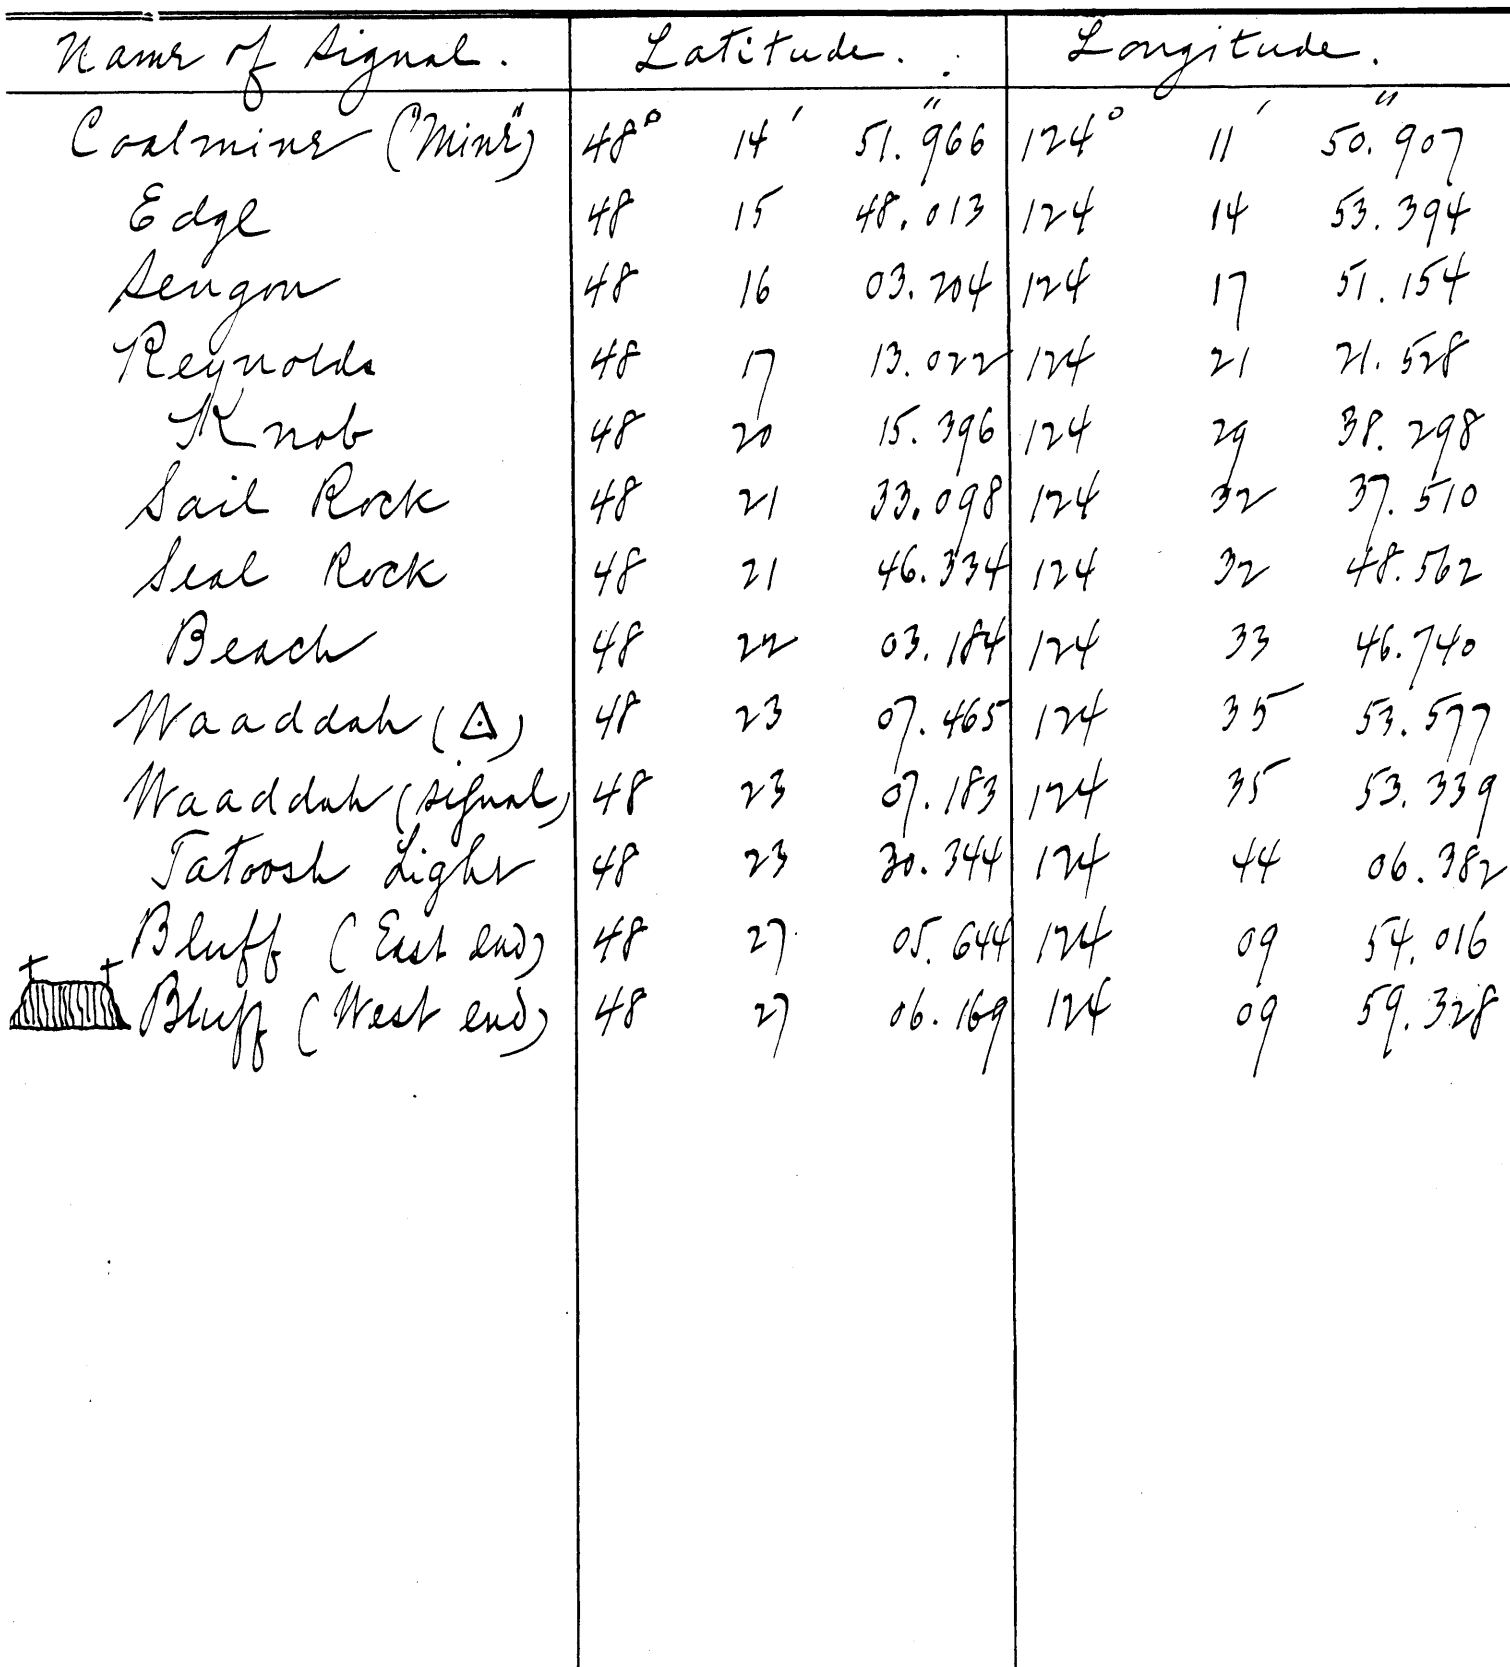 Name of Signal. Latitude. Longitude.
Coalmine ("Mine") 48° 14' 51."966 124° 11' 50."907
Edge 48 15 48.013 124 14 53.394
Sengon 48 16 03.204 124 17 51.154
Reynolds 48 17 13.022 124 21 21.528
Knob 48 20 15.396 124 29 38.298
Sail Rock 48 21 33.098 124 32 37.510
Seal Rock 48 21 46.334 124 32 48.562
Beach 48 22 03.184 124 33 46.740
Waaddah (△) 48 23 07.465 124 35 53.577
Waaddah (signal) 48 23 07.183 124 35 53.339
Tatoosh Light 48 23 30.344 124 44 06.382
Bluff (East end) 48 27 05.644 124 09 54.016
Bluff (West end) 48 27 06.169 124 09 59.328